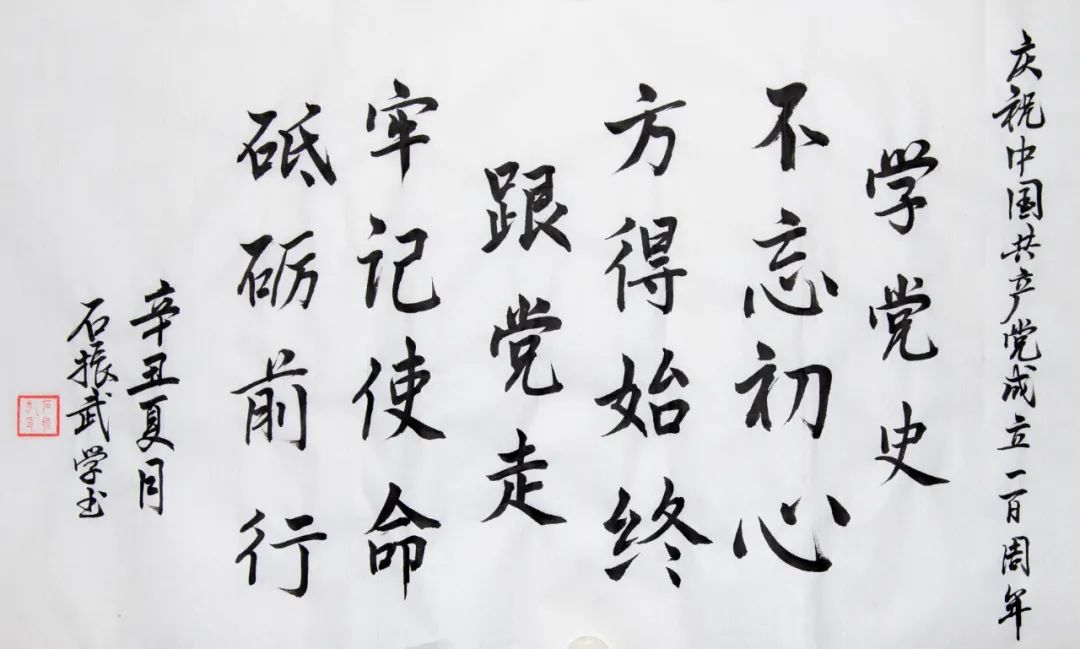 庆祝中国共产党成立一百周年
学党史
不忘初心
方得始终
跟党走
牢记使命
砥砺前行
辛丑夏月
石振武学书